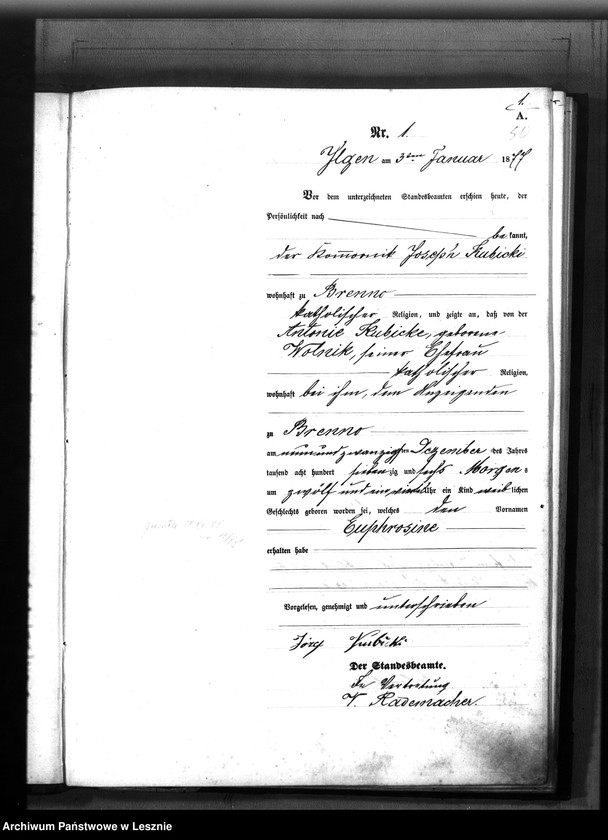 1.
A.
Nr. 1.
Ilgen am 3ten Januar 1877
Vor dem unterzeichneten Standesbeamten erschien heute, der
Persönlichkeit nach
bekannt,
der Komornik Joseph Kubicki
wohnhaft zu Brenno
katholischer Religion, und zeigte an, daß von der
Antonie Kubicke, geborene
Wolnik, seiner Ehefrau
katholischer Religion,
wohnhaft bei ihm, dem Anzeigenden
zu Brenno
am neunundzwanzigsten Dezember des Jahres
tausend acht hundert siebenzig und sechs Morgens
um zwölf und ein viertel Uhr ein Kind weiblichen
Geschlechts geboren worden sei, welches den Vornamen
Euphrosine
erhalten habe
Vorgelesen, genehmigt und unterschrieben
Kubicki
Der Standesbeamte.
In Vertretung
V. Rademacher.
Archiwum Państwowe w Lesznie